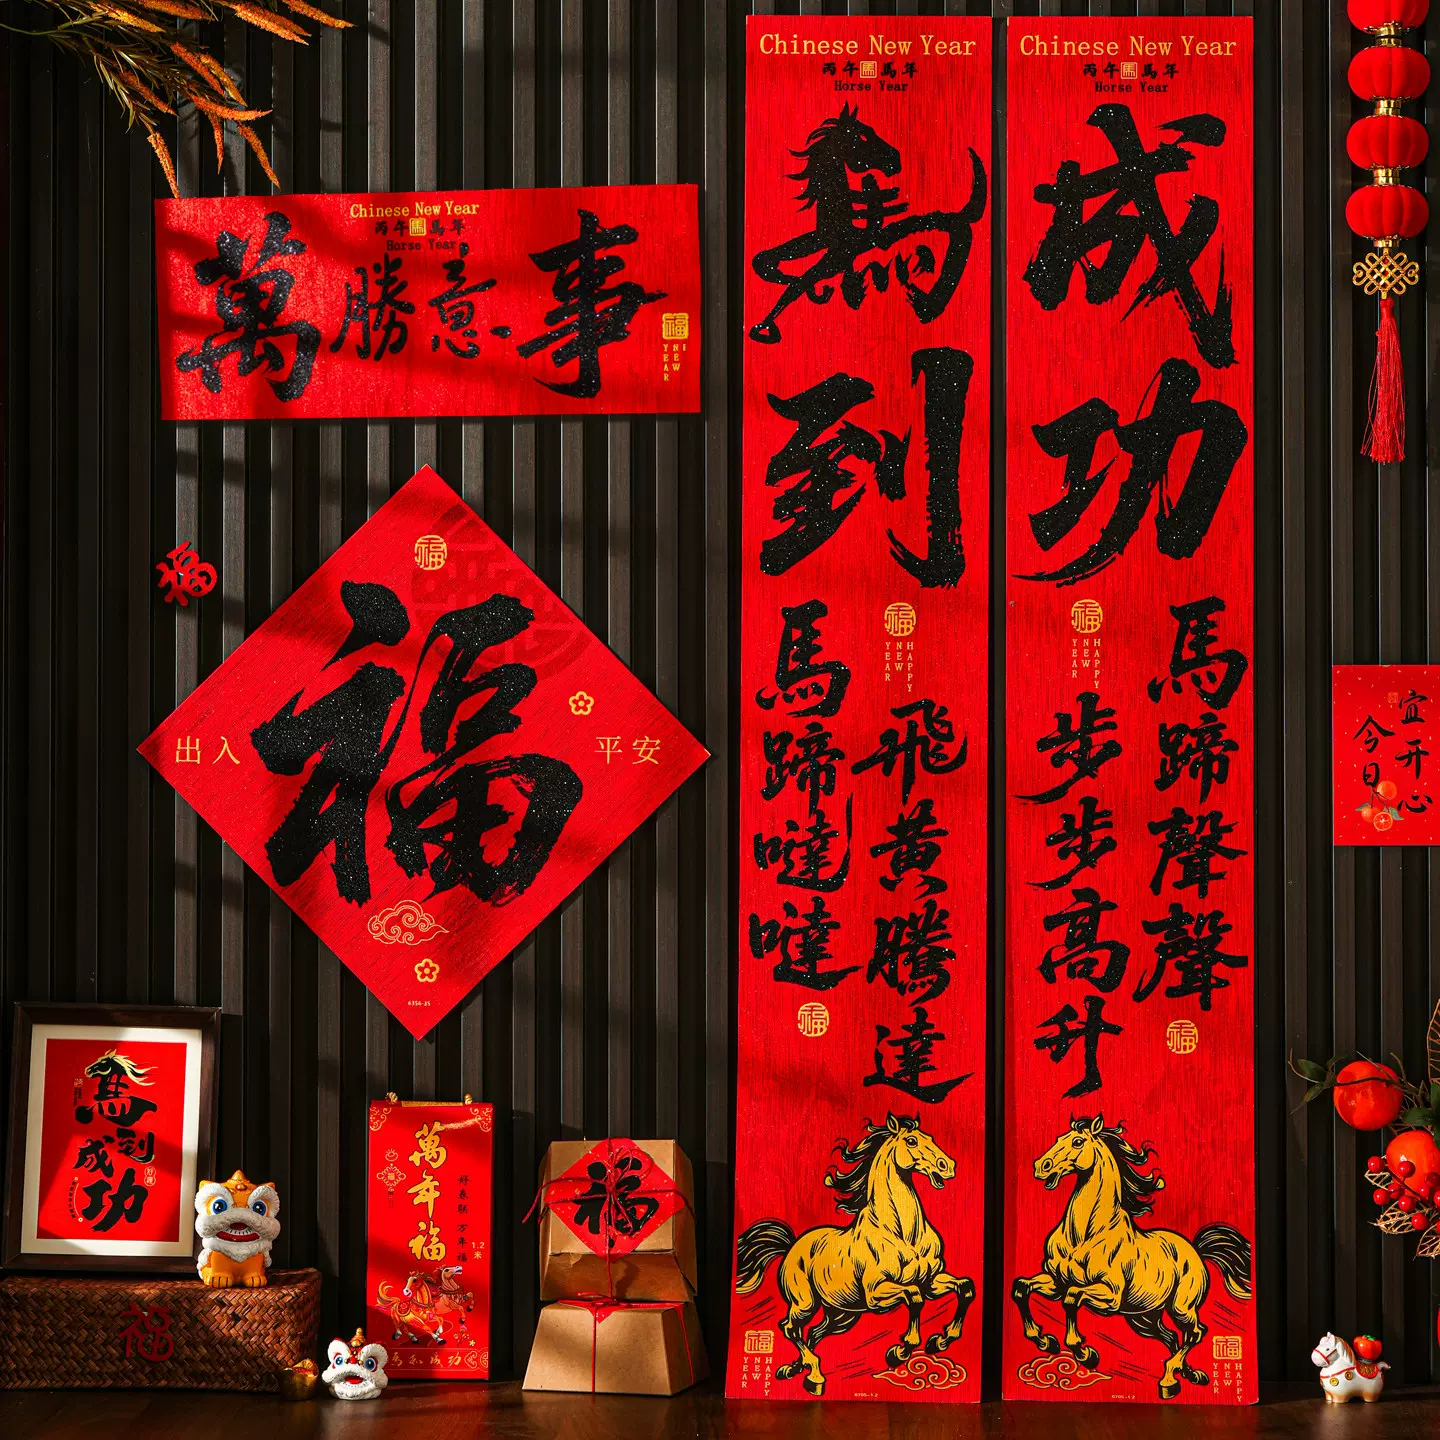 Chinese New Year
丙午 馬 馬年
Horse Year
萬勝意事
福
NEW
YEAR
福
福
福
出入
平安
6356-25
Chinese New Year
丙午 馬 馬年
Horse Year
馬到
福
HAPPY
NEW
YEAR
馬蹄噠噠
飛黃騰達
福
福
HAPPY
NEW
YEAR
Chinese New Year
丙午 馬 馬年
Horse Year
成功
福
HAPPY
NEW
YEAR
馬蹄聲聲
步步高升
福
福
HAPPY
NEW
YEAR
今日
宜开心
馬到
成功
萬年福
好春联 万年福
1.2米
福
福